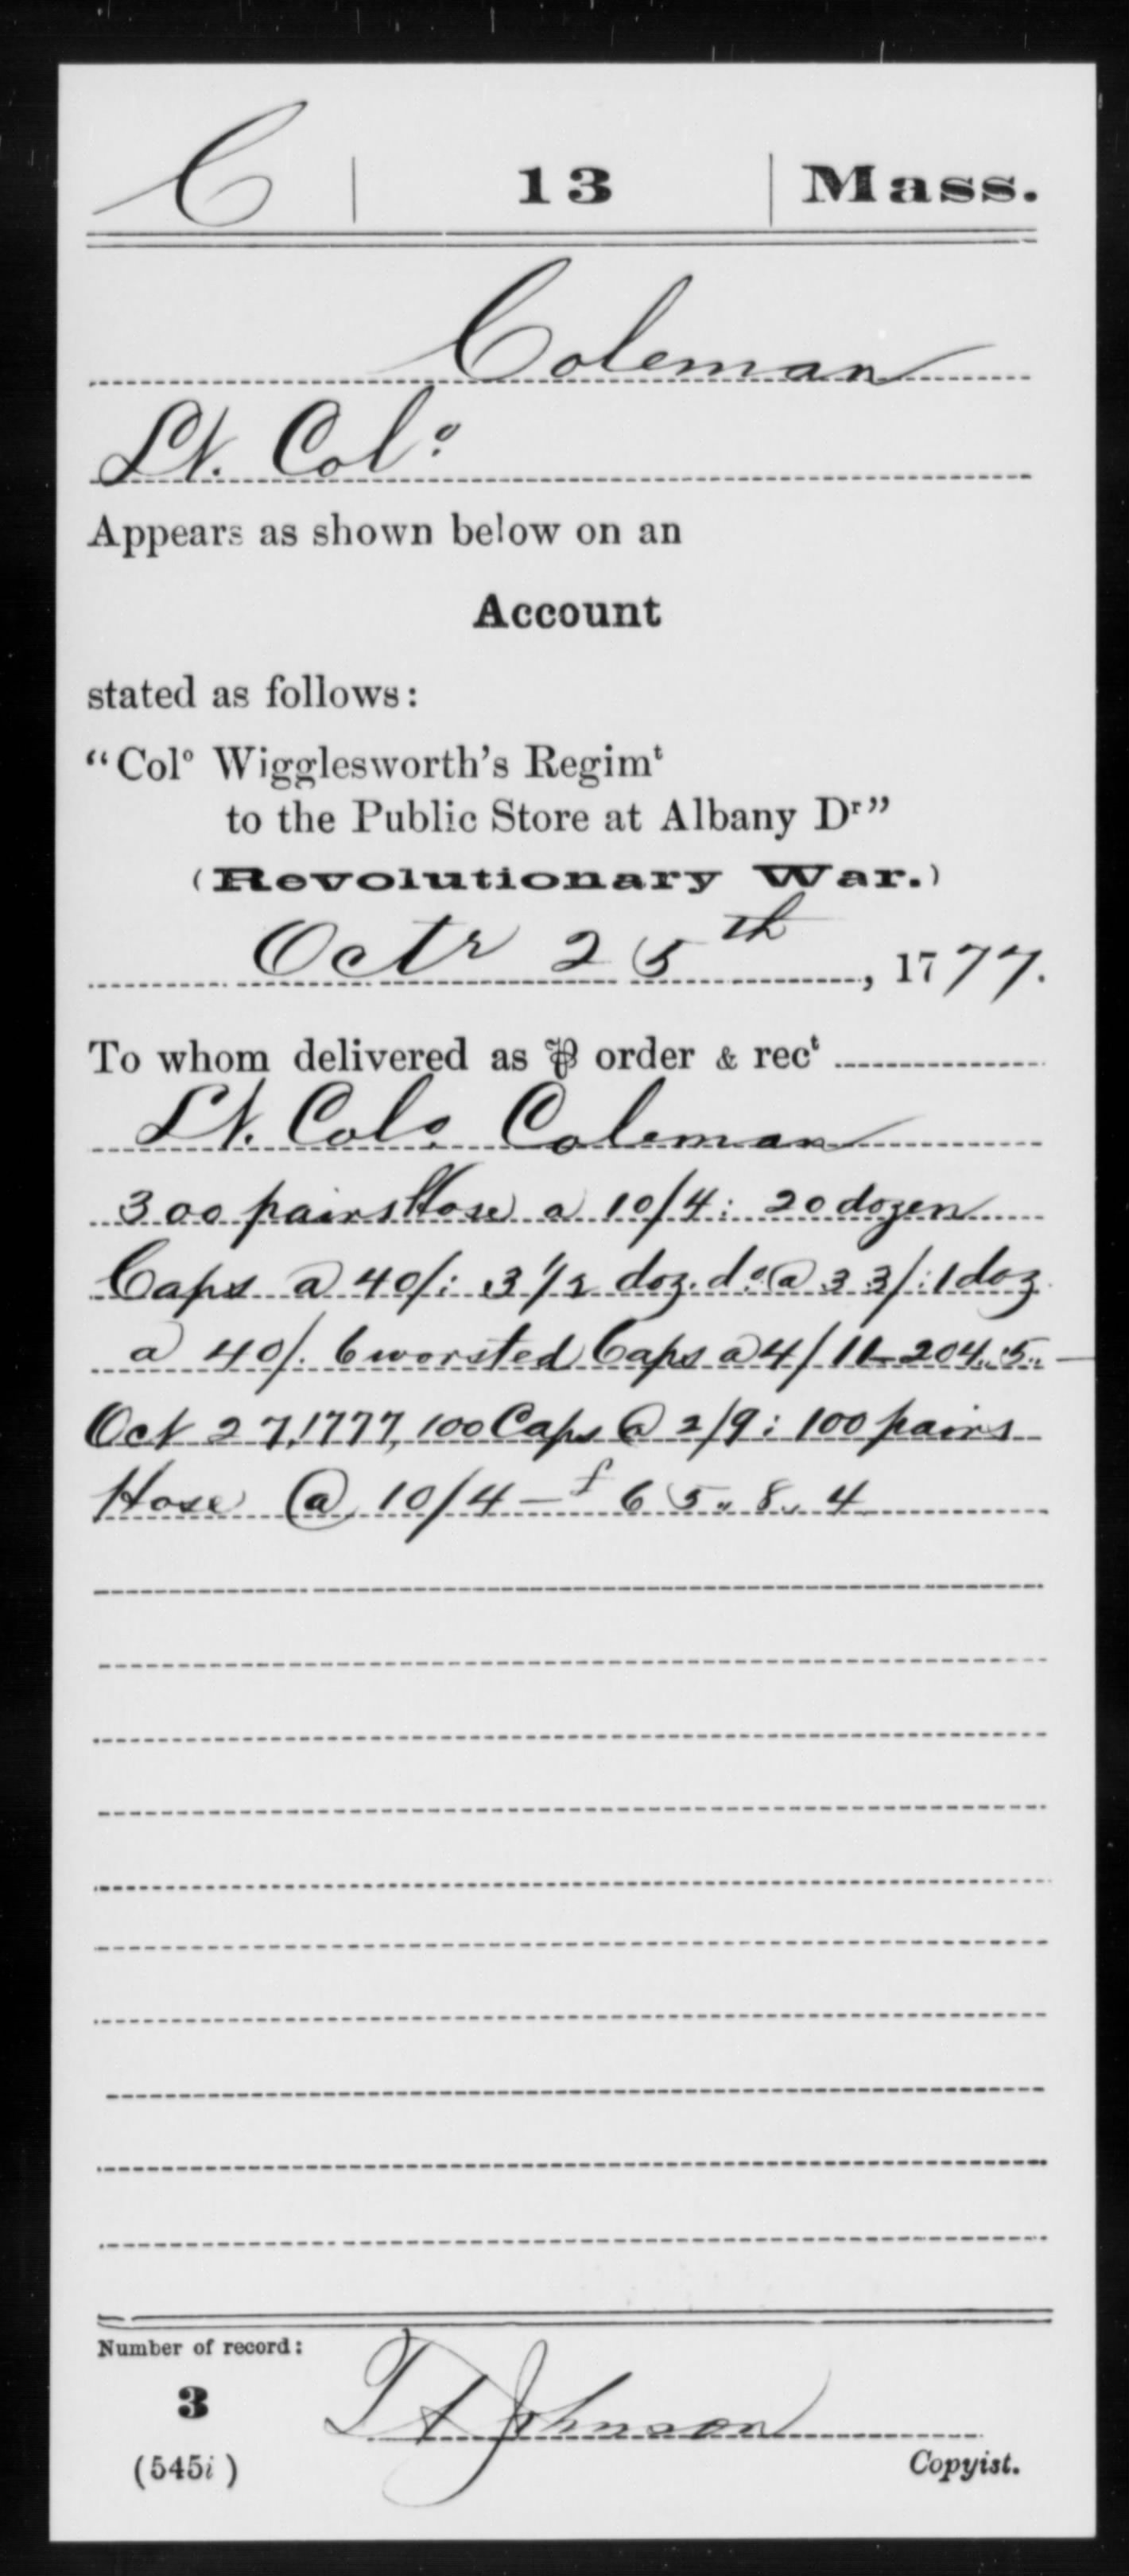 C | 13 | Mass.
Coleman
Lt. Colº
Appears as shown below on an
Account
stated as follows:
"Colº Wigglesworth's Regimᵗ
to the Public Store at Albany Dʳ"
(Revolutionary War.)
Octr 25th, 1777.
To whom delivered as ⅌ order & recᵗ
Lt. Colo. Coleman
300 pairs Hose a 10/4: 20 dozen
Caps a 40/: 3 1/2 doz. dº @ 33/: 1 doz
a 40/. 6 worsted Caps a 4/ 11 204..5.. —
Oct 27, 1777, 100 Caps @ 2/9: 100 pairs
Hose @ 10/4 — £65.. 8.. 4
Number of record:
3
T A Johnson
(545i)
Copyist.